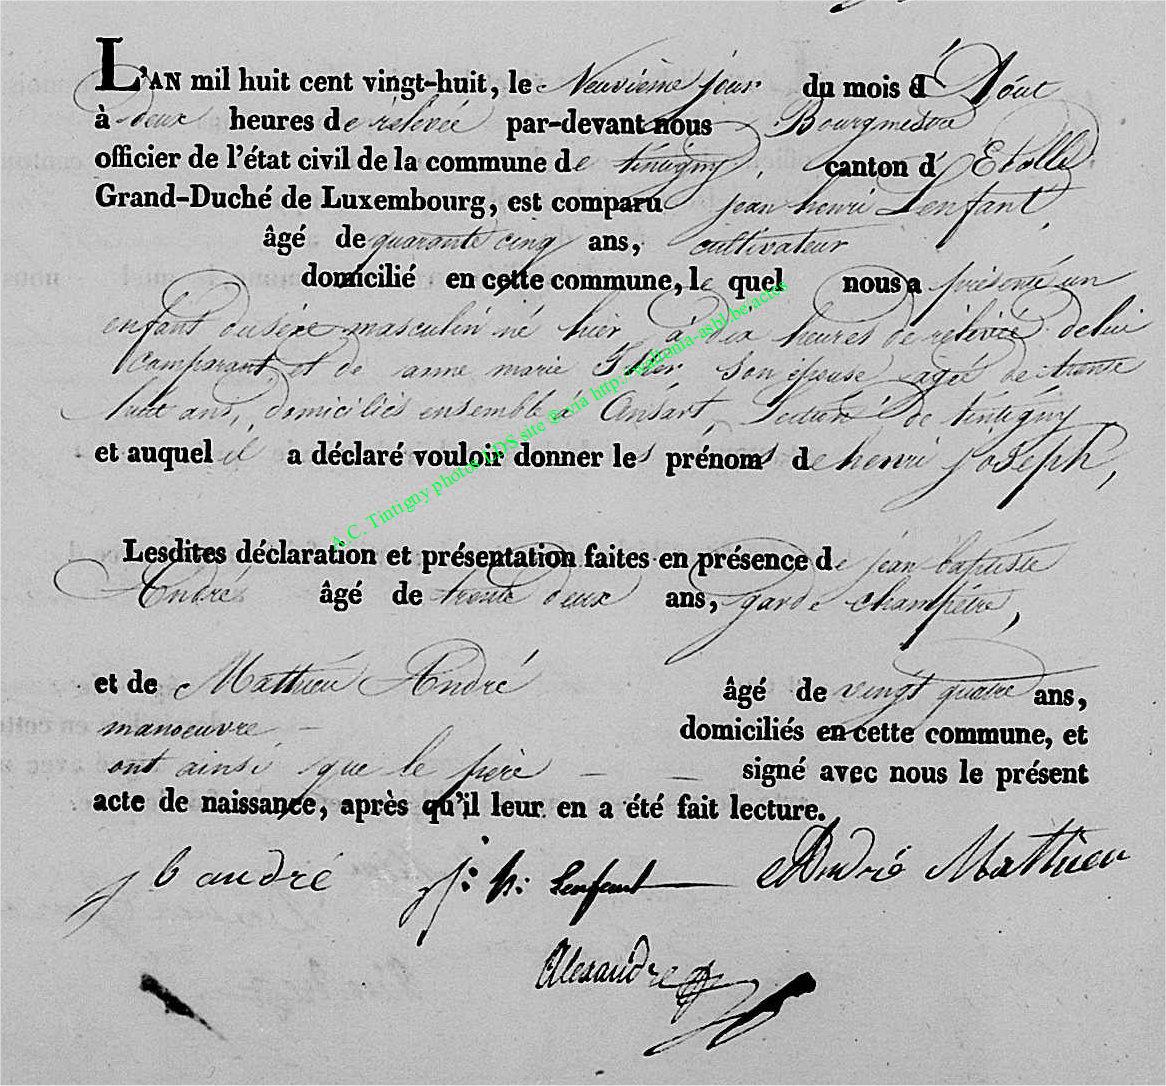 L'AN mil huit cent vingt-huit, le Neuvième jour du mois d'Août
à deux heures de rélévée par-devant nous Bourgmestre
officier de l'état civil de la commune de tintigny, canton d'Etalle
Grand-Duché de Luxembourg, est comparu jean henri Lenfant,
âgé de quarante cinq ans, cultivateur
domicilié en cette commune, le quel nous a présenté un
enfant du sèxe masculin né hier à dix heures de rélévée de lui
comparant, et de anne marie son épouse, agée de trente
huit ans, domiciliés ensemble à Ansart, Section de tintigny,
et auquel il a déclaré vouloir donner les prénoms de henri joseph,
Lesdites déclaration et présentation faites en présence de jean baptiste
André âgé de trente deux ans, garde champétre,
et de Mathieu André âgé de vingt quatre ans,
manoeuvre domiciliés en cette commune, et
ont ainsi que le père signé avec nous le présent
acte de naissance, après qu'il leur en a été fait lecture.
j b andré j: h: Lenfant André Mathieu
Alexandre
A.C. Tintigny photos LDS site via http://gallonia-asbl.be/actes